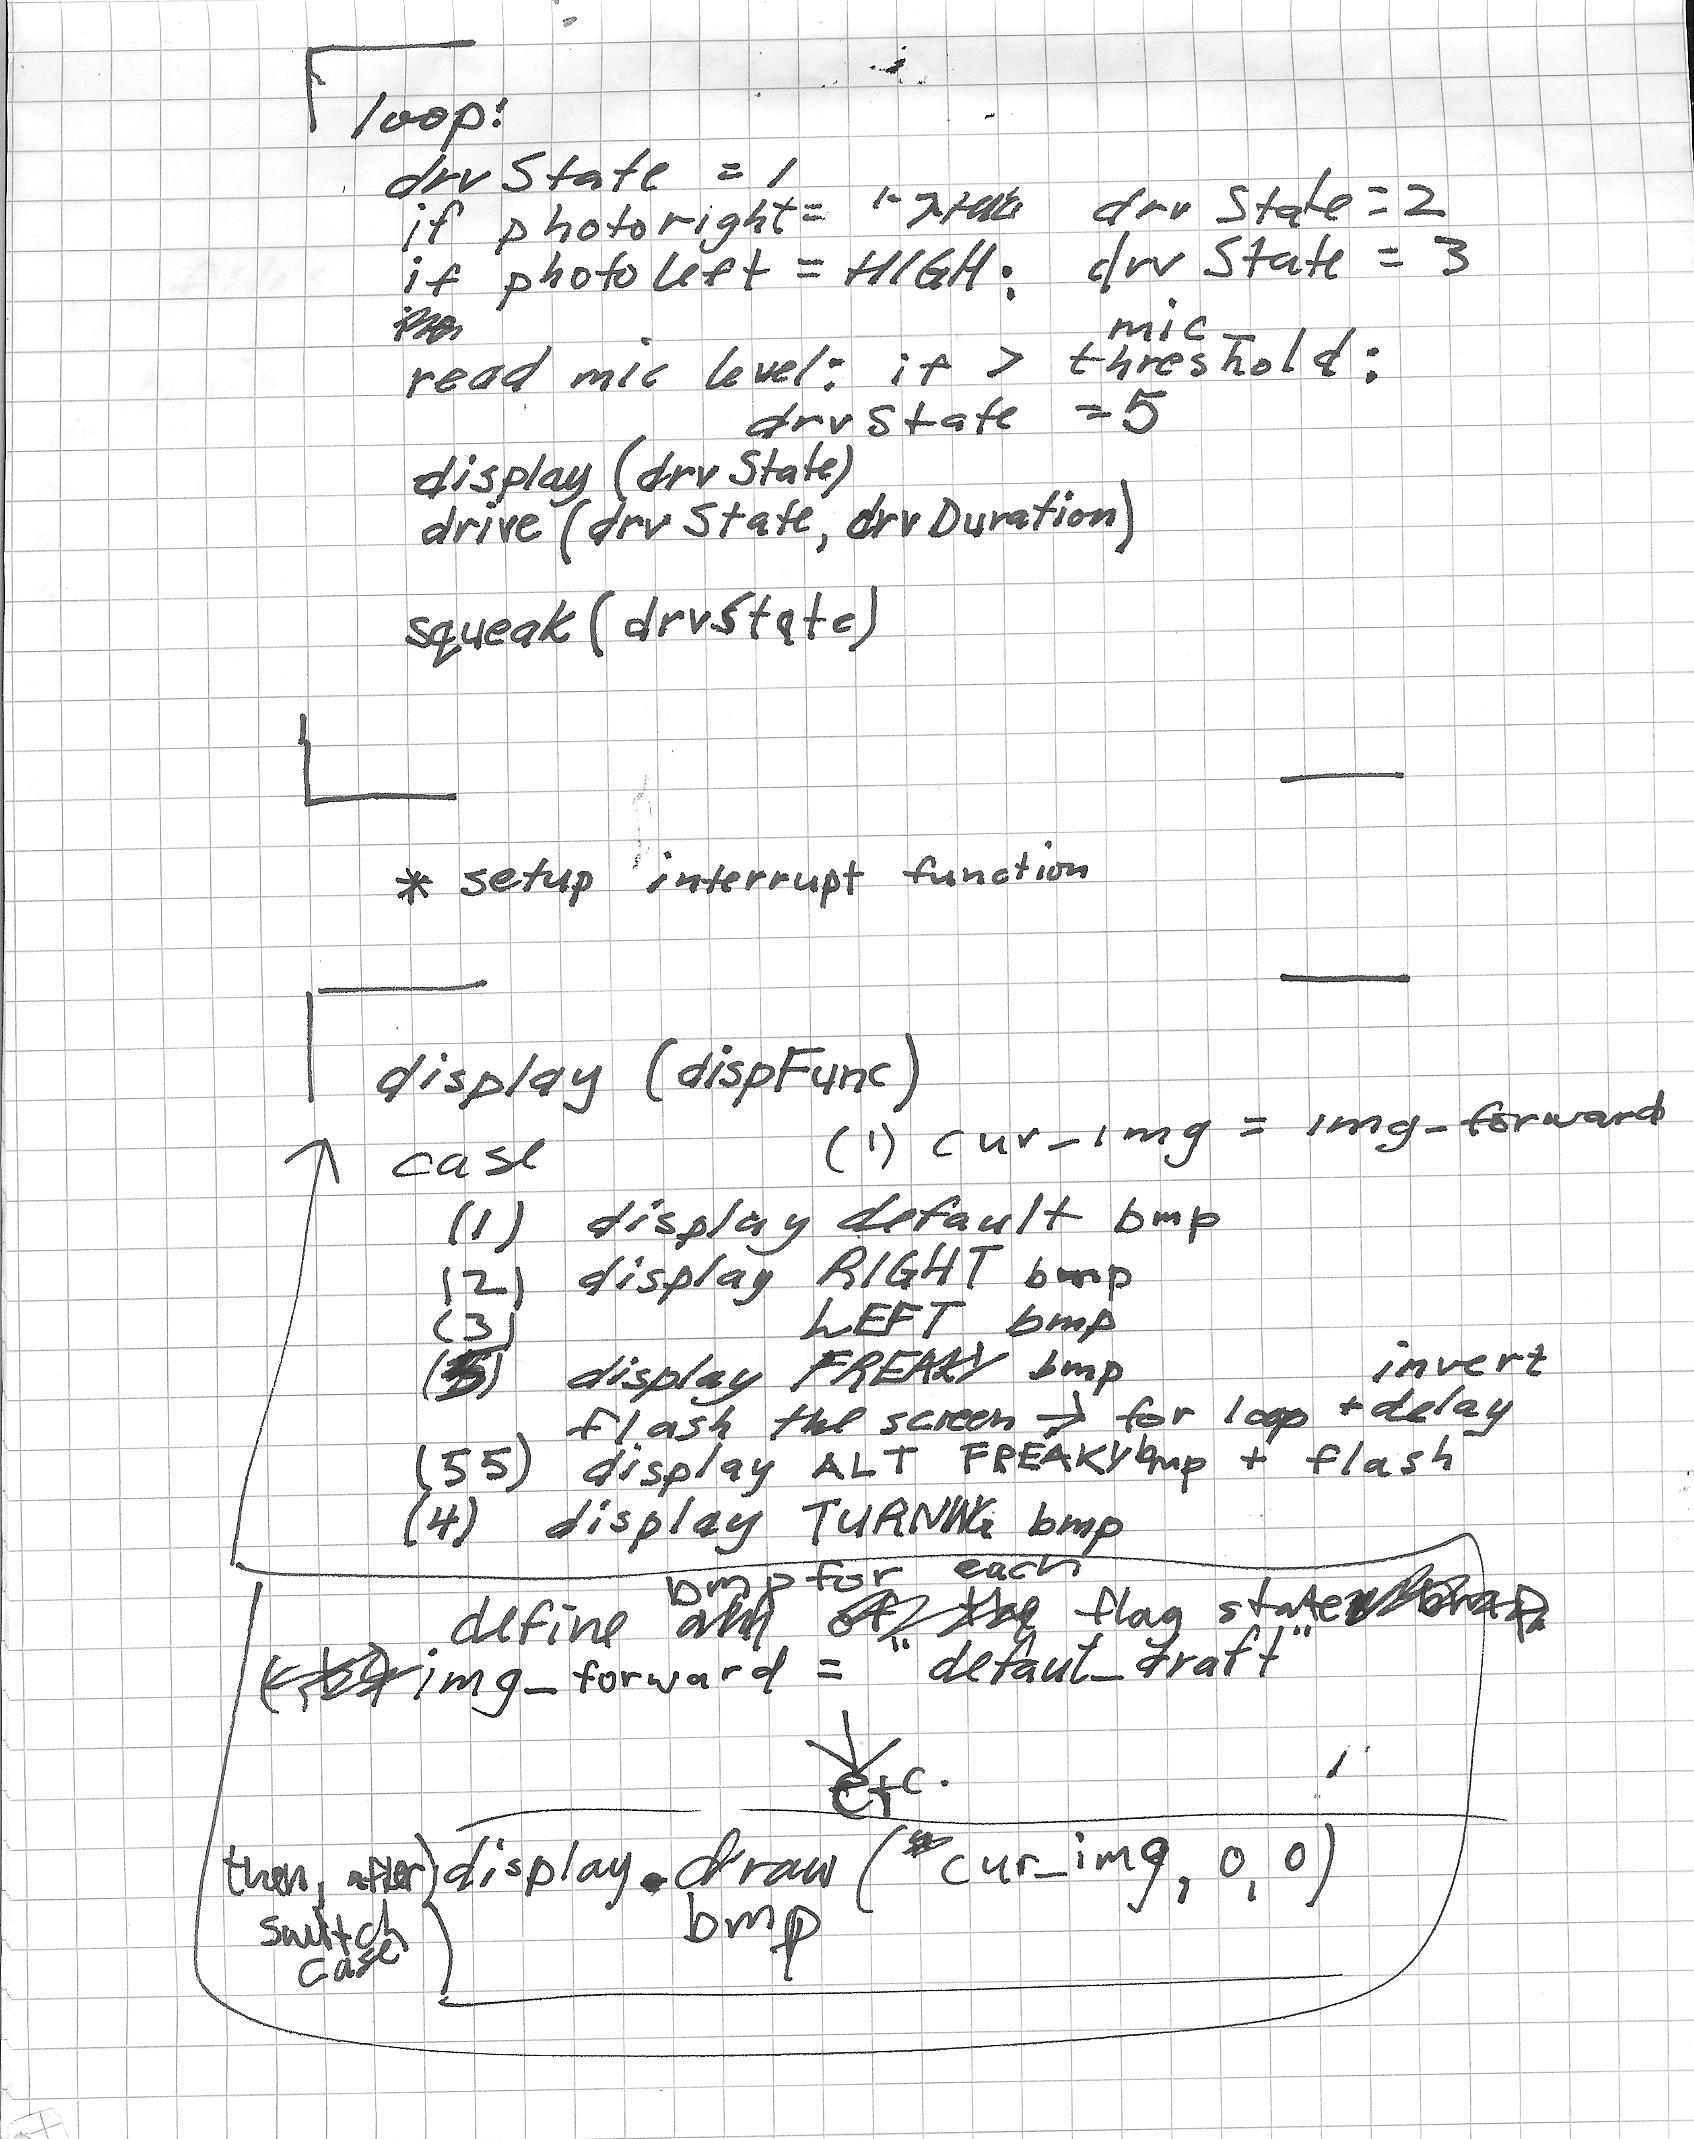 loop:
drvState = 1
if photoright = drvState = 2
if photoleft = HIGH: drvState = 3
mic_
read mic level: if > threshold:
drvState = 5
display (drvState)
drive (drvState, drvDuration)
squeak (drvState)
* setup interrupt function
display (dispFunc)
case (1) cur_img = img_forward
(1) display default bmp
(2) display RIGHT bmp
(3) LEFT bmp
(5) display FREAKY bmp invert
flash the screen → for loop + delay
(55) display ALT FREAKY bmp + flash
(4) display TURNING bmp
bmp for each
define flag state
img_forward = "defaut_draft"
etc.
then, after) display.draw (*cur_img, 0, 0)
switch bmp
case